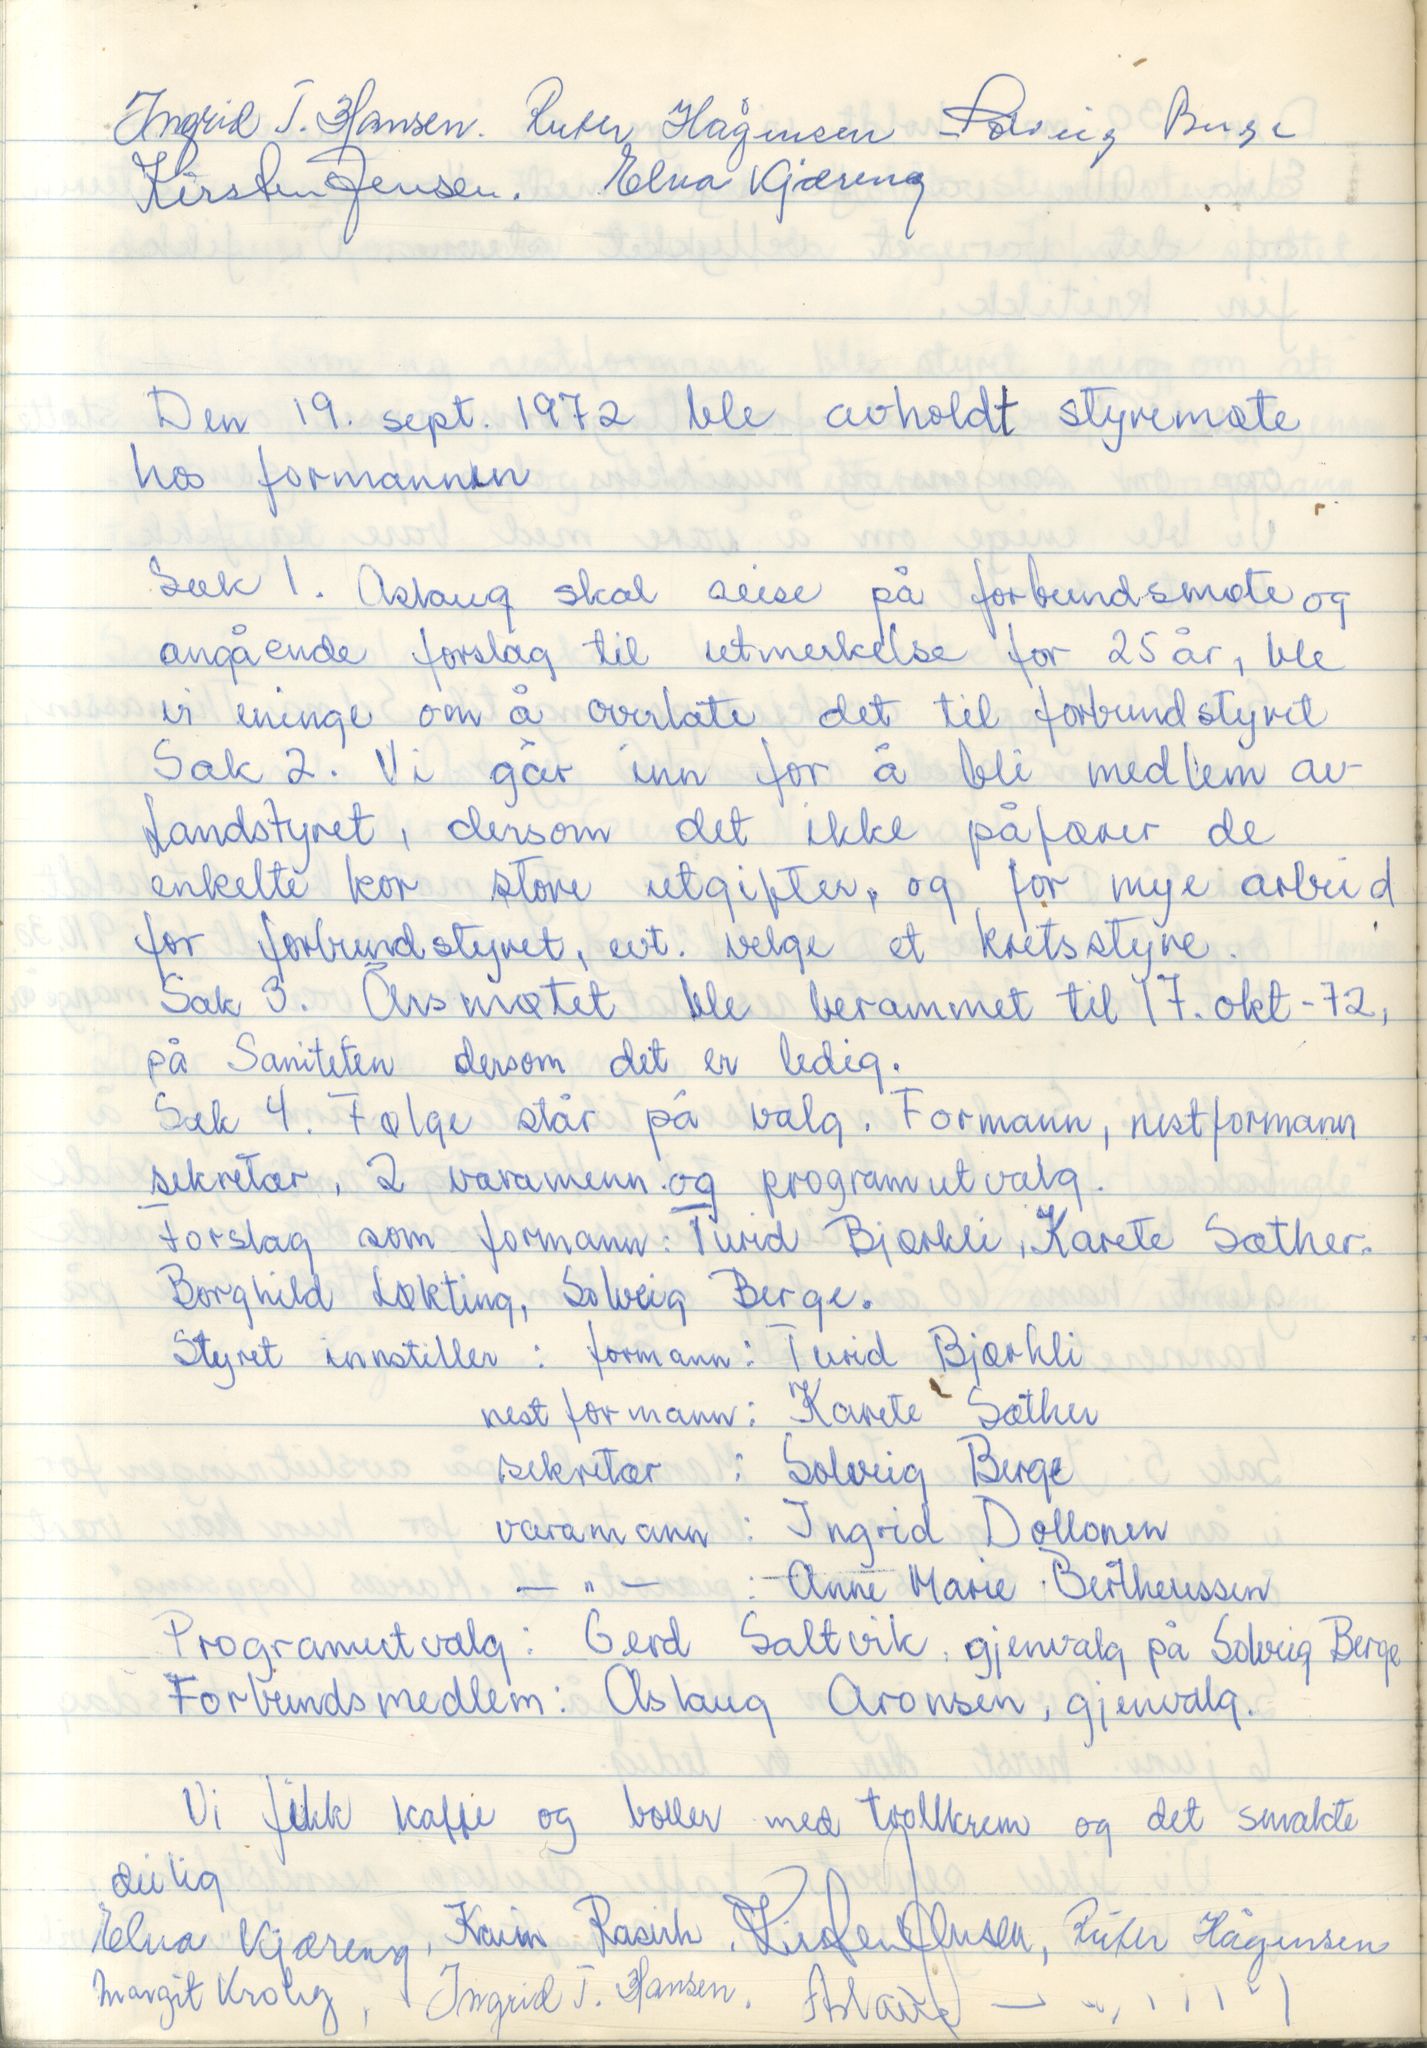 Ingrid T. Hansen. Ruter Hågensen Solveig Berge
Kirsten Jensen. Elna Kjæreng
Den 19. sept. 1972 ble avholdt styremøte
hos formannen
Sak 1. Aslaug skal reise på forbundsmøte og
angående forslag til utmerkelse for 25 år, ble
vi eninge om å overlate det til forbundstyret
Sak 2. Vi går inn for å bli medlem av
Landstyret, dersom det ikke påfører de
enkelte kor store utgifter, og for mye arbeid
for forbundstyret, evt. velge et kretsstyre.
Sak 3. Årsmøtet ble berammet til 17. okt - 72,
på Saniteten dersom det er ledig.
Sak 4. Følge står på valg. Formann, nestformann
sekretær, 2 varamenn og programutvalg.
Forslag som formann: Turid Bjørkli, Karete Sæther.
Borghild Løkting, Solveig Berge.
Styret innstiller: formann: Turid Bjørkli
nestformann: Karete Sæther
sekretær : Solveig Berge
varamann : Ingrid Dollonen
— " — : Anne Marie Bertheussen
Programutvalg: Gerd Saltvik, gjenvalg på Solveig Berge
Forbundsmedlem: Aslaug Aronsen, gjenvalg.
Vi fikk kaffe og boller med trollkrem og det smakte
deilig
Elna Kjæreng, Karin Rasch, Kirsten Jensen, Ruter Hågensen
Margit Krohg, Ingrid T. Hansen. Aslaug